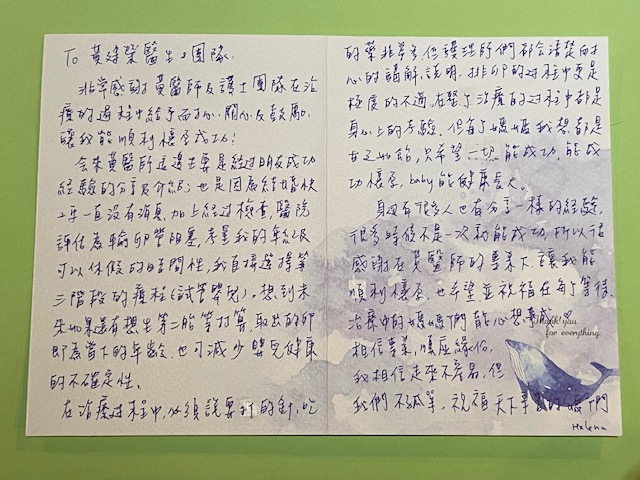 To 黃建榮醫生&團隊:
非常感謝黃醫師及護士團隊在治
療的過程中給予而耐心、關心及鼓勵,
讓我能順利懷孕成功!
會來黃醫師這邊主要是經過朋友成功
經驗的分享及介紹;也是因為結婚快
2年一直沒有消息,加上經過檢查,醫院
評估為輸卵管阻塞,考量我的年紀及
可以休假的時間性,我直接選擇第
三階段的療程(試管嬰兒),想到未
來如果還有想生第二胎等打算,取出的卵
即為當下的年齡,也可減少嬰兒健康
的不確定性。
在治療過程中,必須說要打的針,吃
的藥非常多,但護理師們都會清楚而耐
心的講解、說明,排卵的過程中更是
極度的不適,在整個治療的過程中都是
身心上的考驗,但每個媽媽我想都是
甘之如飴,只希望一切能成功,能成
功懷孕,baby能健康長大。
身邊有很多人也有分享一樣的經驗,
很多時候不是一次就能成功,所以很
感謝在黃醫師的專業下,讓我能
順利懷孕,也希望並祝福在每個等待、
治療中的媽媽們能心想事成。
Thank you
for everything.
相信專業,讓應緣份,
我相信走來不容易,但
我們不孤單,祝福天下的媽媽們
Helena